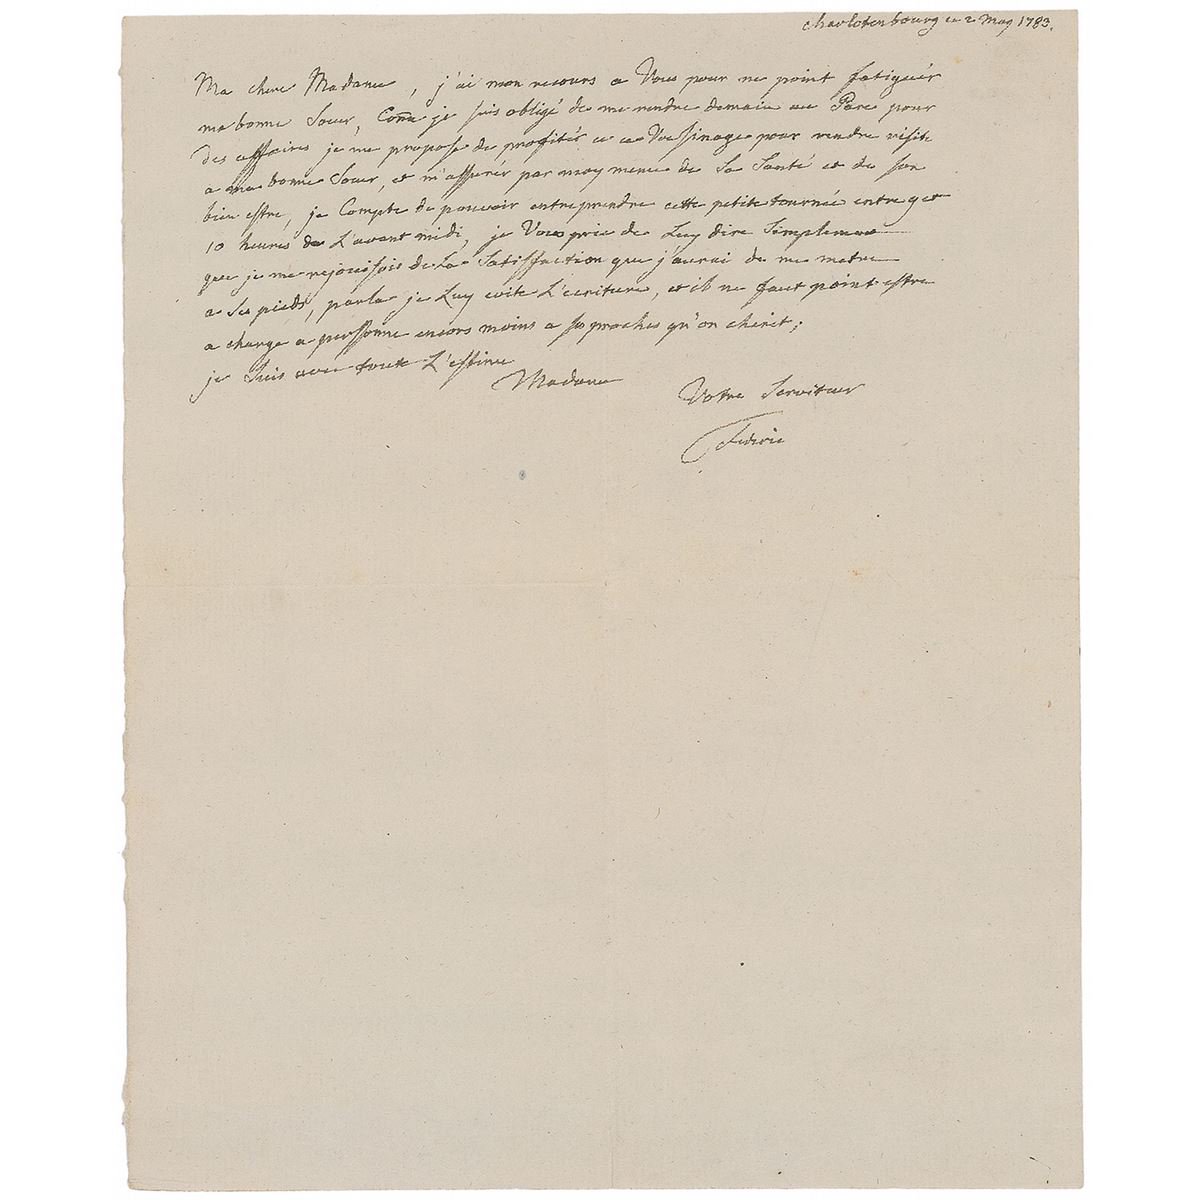 charlotenbourg ce 2 May 1783.
Ma chere Madame, j'ai mon recours a Vous pour ne point fatiguér
ma bonne Soeur, Come je suis obligé de me rendre demain au Parc pour
des affaires je me propose de profitér de ce Voissinage pour rendre visite
a ma bonne Soeur, et m'assurér par moy meme de Sa Santé et de son
bien estre, je Compte de pouvoir entreprendre cette petite tournée entre 9 et
10 heures de L'avant midi, je Vous prie de Luy dire Simplement
que je me rejouissois de La Satisfaction que j'aurai de me metre
a Ses pieds, par la je Luy evite L'ecriture, et il ne faut point estre
a charge a perssonne encors moins a ses proches qu'on cherit;
je Suis avec toute L'estime
Madame
Votre Serviteur
Federic